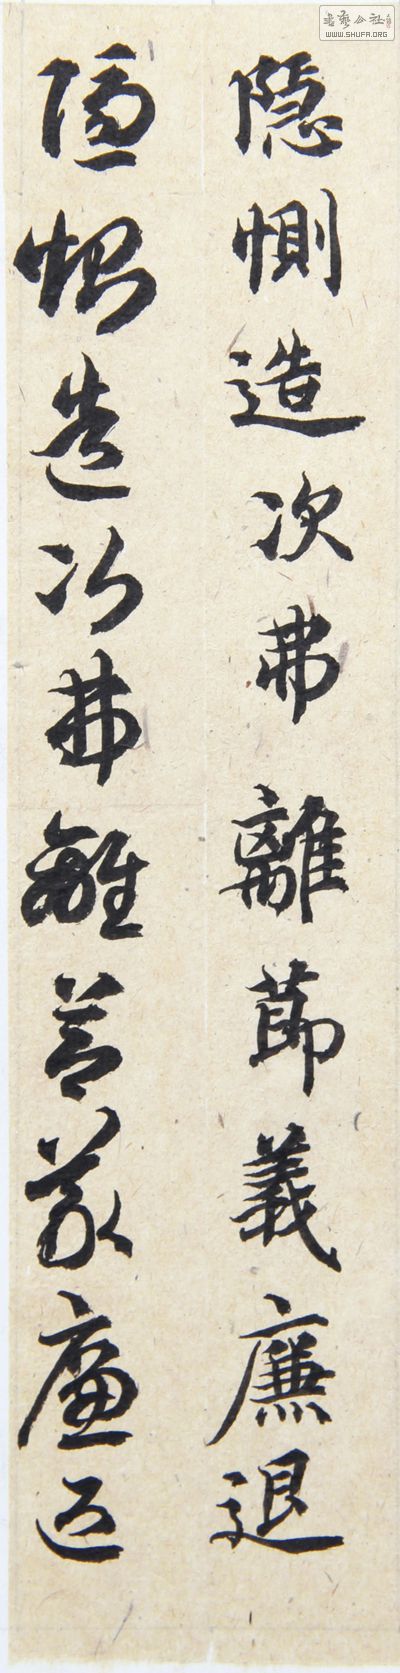 隱惻造次弗離節義廉退
隱惻造次弗離節義廉退
書藝公社
WWW.SHUFA.ORG